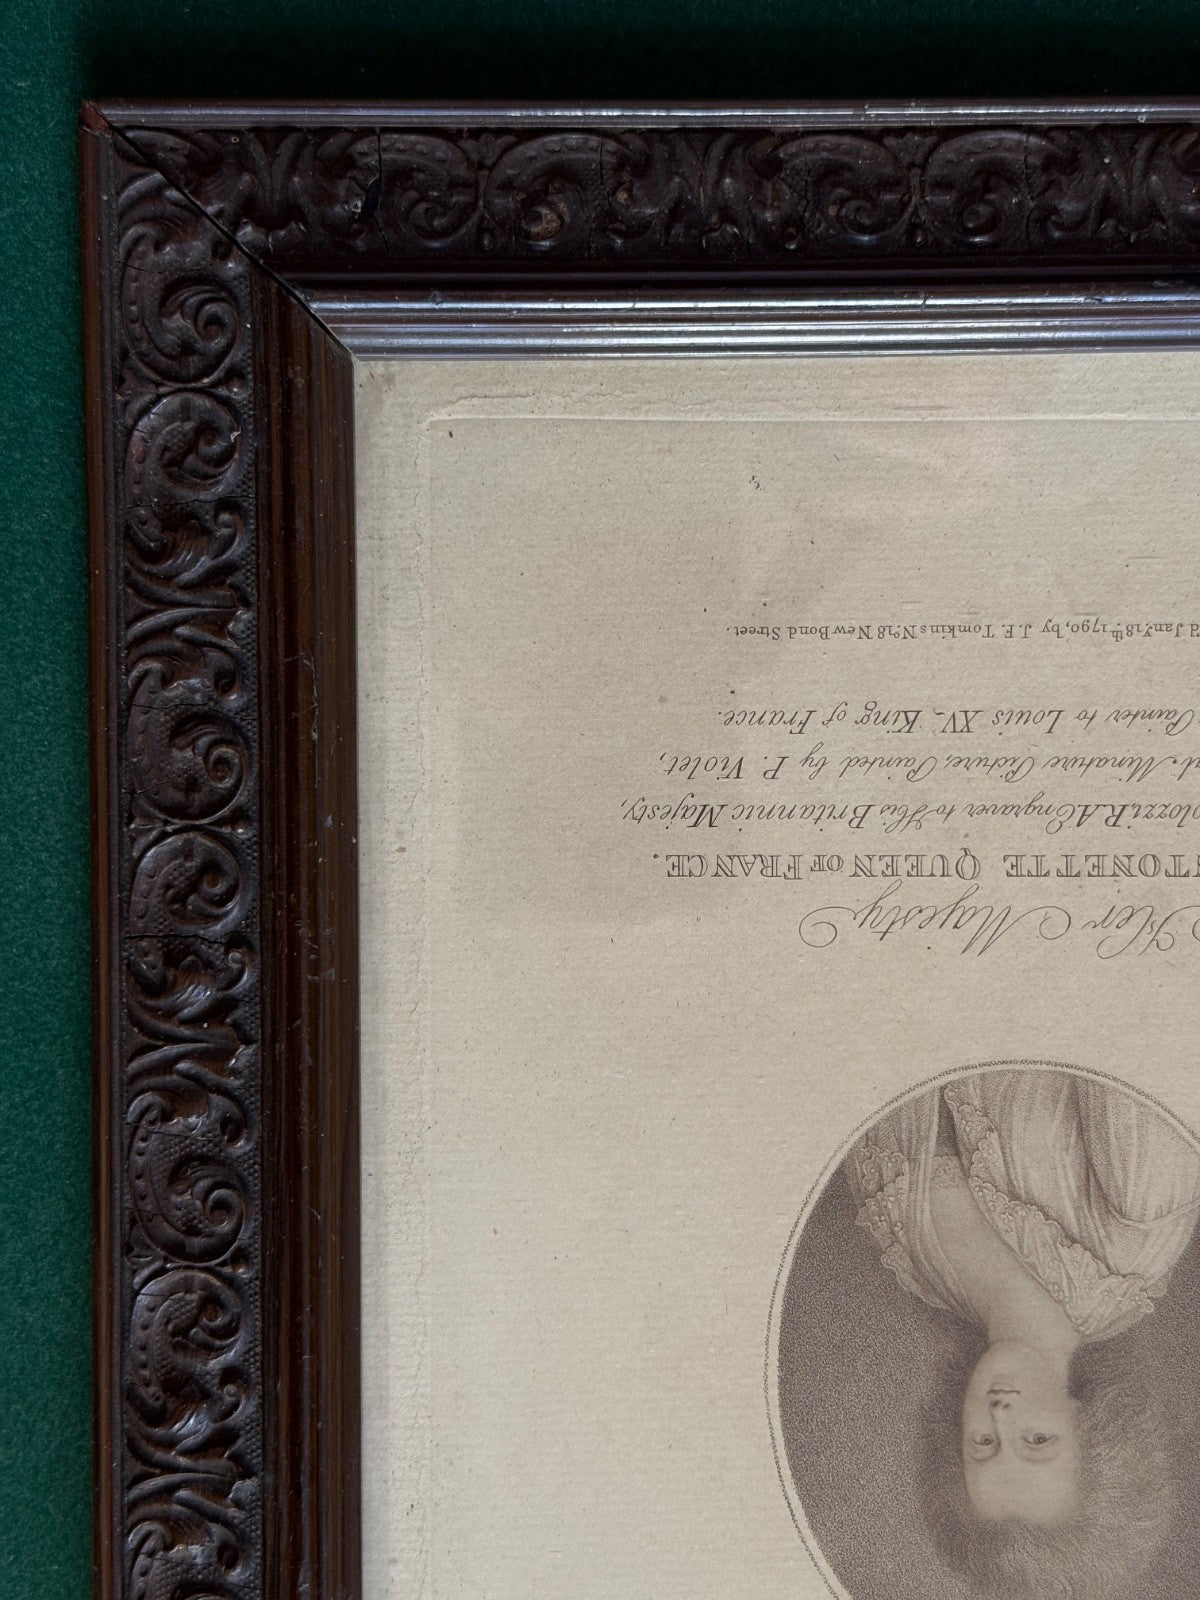 Her Majesty
TONETTE QUEEN OF FRANCE.
olozzi R.A Engraver to His Britannic Majesty,
al Minature Picture, Painted by P. Violet,
Painter to Louis XV. King of France.
d Jany. 18th. 1790, by J. F. Tomkins No. 18 New Bond Street.